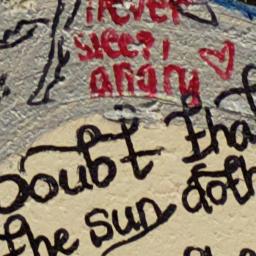 never
sleep,
angry
Doubt that
the sun doth